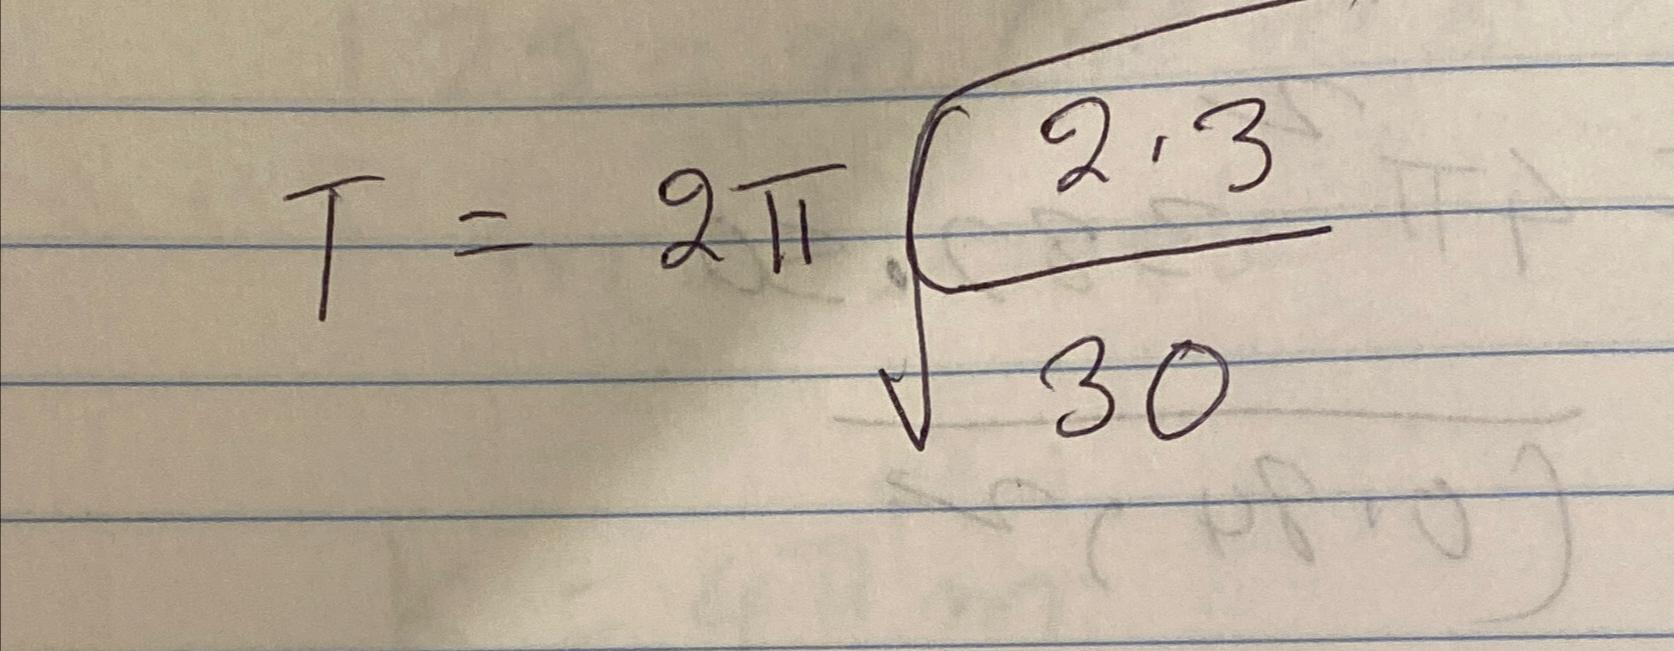 T = 2π √(2.3 / 30)